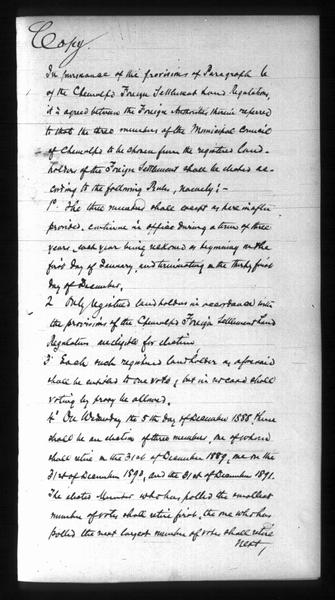 Copy.
In pursuance of the provisions of Paragraph 6
of the Chemulpo Foreign Settlement Land Regulations,
it is agreed between the Foreign Authorities therein referred
to that the three members of the Municipal Council
of Chemulpo to be chosen from the registered land-
holders of the Foreign Settlement shall be elected ac-
cording to the following Rules, namely:-
1°. The three members shall except as hereinafter
provided, continue in office during a term of three
years, each year being reckoned as beginning on the
first day of January, and terminating on the thirty first
day of December.
2. Only registered landholders in accordance with
the provisions of the Chemulpo Foreign Settlement Land
Regulations are eligible for election.
3° Each such registered landholder as aforesaid
shall be entitled to one vote, but in no case shall
voting by proxy be allowed.
4° On Wednesday the 5th day of December 1888 there
shall be an election of three members, one of whom
shall retire on the 31st of December 1889, one on the
31st of December 1890, and the 31st of December 1891.
The elected Member who has polled the smallest
number of votes shall retire first, the one who has
polled the next largest number of votes shall retire
next,